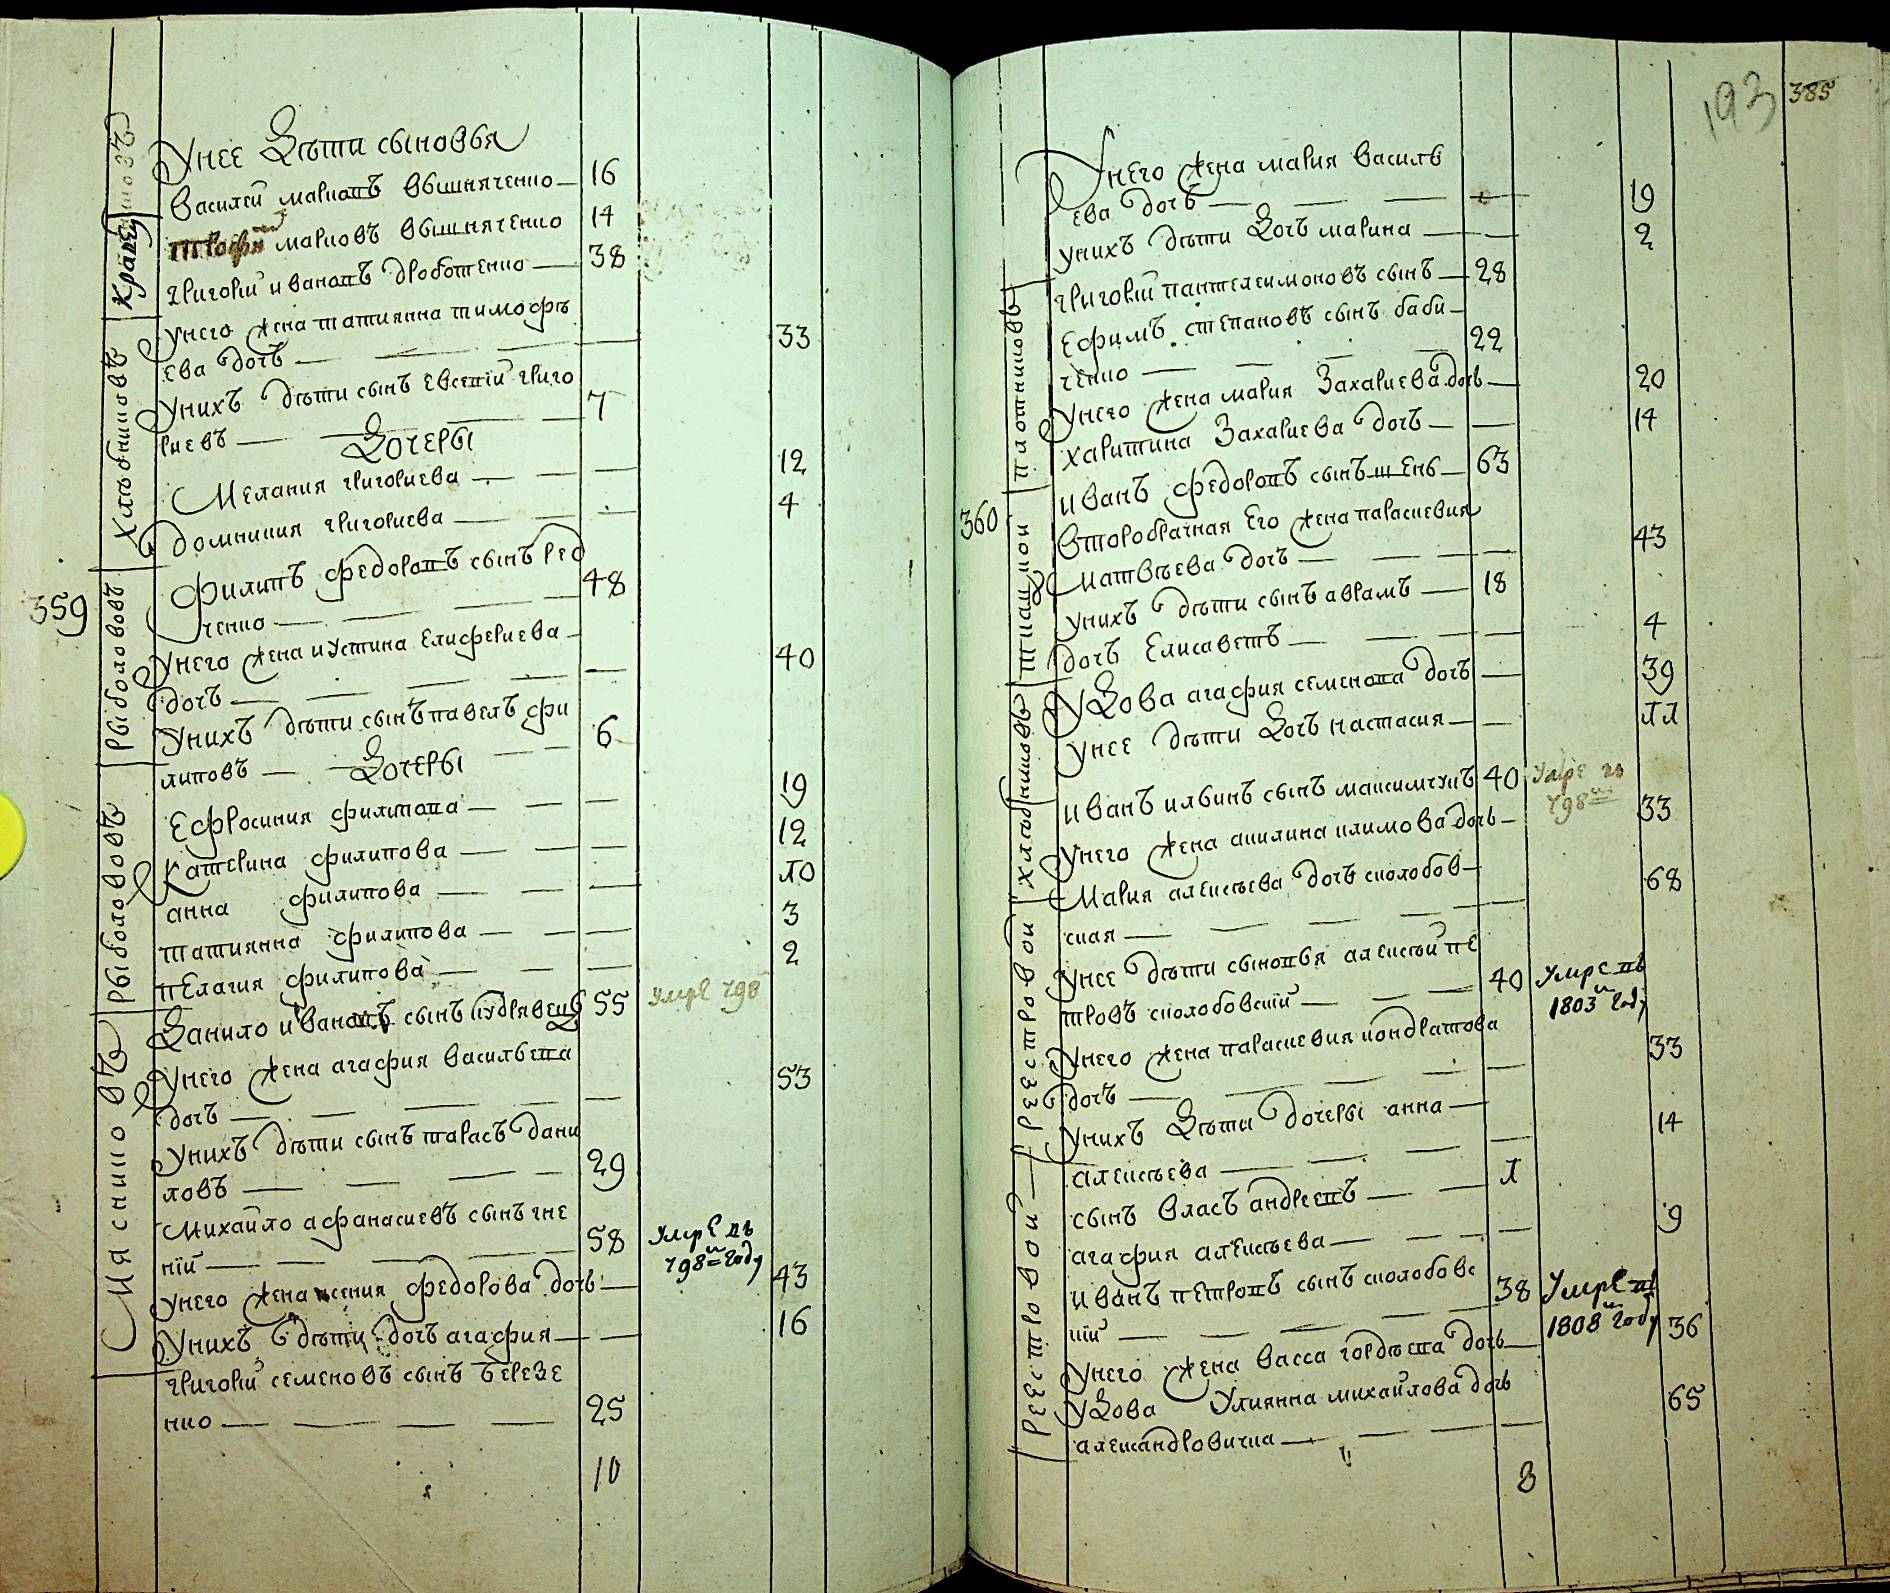 Унее Дѣти сыновья
Василей марковъ вышняченко — 16
Трофим марковъ вышняченко 14
григорій ивановъ дроботенко — 38
Унего жена татиянна тимофѣ
ева дочь — 33
Унихъ дѣти сынъ евсеній григо
риевъ — 7
Дочеры
Мелания григориева — 12
домникия григориева — 4
359
Филипъ федоровъ сынъ ред
ченко — 48
Унего жена иустина елисфериева
дочь — 40
Унихъ дѣти сынъ павелъ фи
липовъ — 6
Дочеры
Ефросиния филипова — 19
Катерина филипова — 12
анна филипова — 10
татиянна филипова — 3
пелагия филипова — 2
Данило ивановъ сынъ кудрявецъ 55 Умре 798
Унего жена агафия васильева
дочь — 53
Унихъ дѣти сынъ тарасъ дани
ловъ — 29
Михайло афанасиевъ сынъ гне
кій — 58 Умре въ
798м году
Унего жена ксения федорова дочь — 43
Унихъ дѣти дочь агафия — 16
григорій семеновъ сынъ березе
нко — 25
10
Кравцу
Хлѣбниковъ
Рыболововъ
Рыболововъ
Мясниковъ
193 385
Унего жена мария василь
ева дочь — 19
Унихъ дѣти Дочь марина — 2
григорій пантелеимоновъ сынъ — 28
Ефимъ степановъ сынъ баби
ченко — 22
Унего жена мария Захариева дочь — 20
харитина Захариева дочь — 14
360
Иванъ федоровъ сынъ шень — 63
Второбрачная его жена параскевия
Матвѣева дочь — 43
Унихъ дѣти сынъ аврамъ — 18
дочь Елисаветъ — 4
УДова агафия семенова дочь — 39
Унее дѣти Дочь настасия — 11
Иванъ ильинъ сынъ максимчукъ 40 Умре въ
798м
Унего жена акилина климова дочь — 33
Мария алексѣева дочь сколобов
ская — 68
Унее дѣти сыновья алексѣй пе
тровъ сколобовскій — 40 Умре въ
1803м году
Унего жена параскевия кондратова
дочь — 33
Унихъ Дѣти дочеры анна
алексѣева — 14
сынъ власъ андреевъ — 1
агафия алексѣева — 9
Иванъ петровъ сынъ сколобовс
кій — 38 Умре въ
1808м году
Унего жена васса гордѣева дочь — 36
УДова Улиянна михайлова дочь
александровичка — 65
8
плотниковъ
ткацкой
хлѣбниковъ
Реестровой
Реестровой